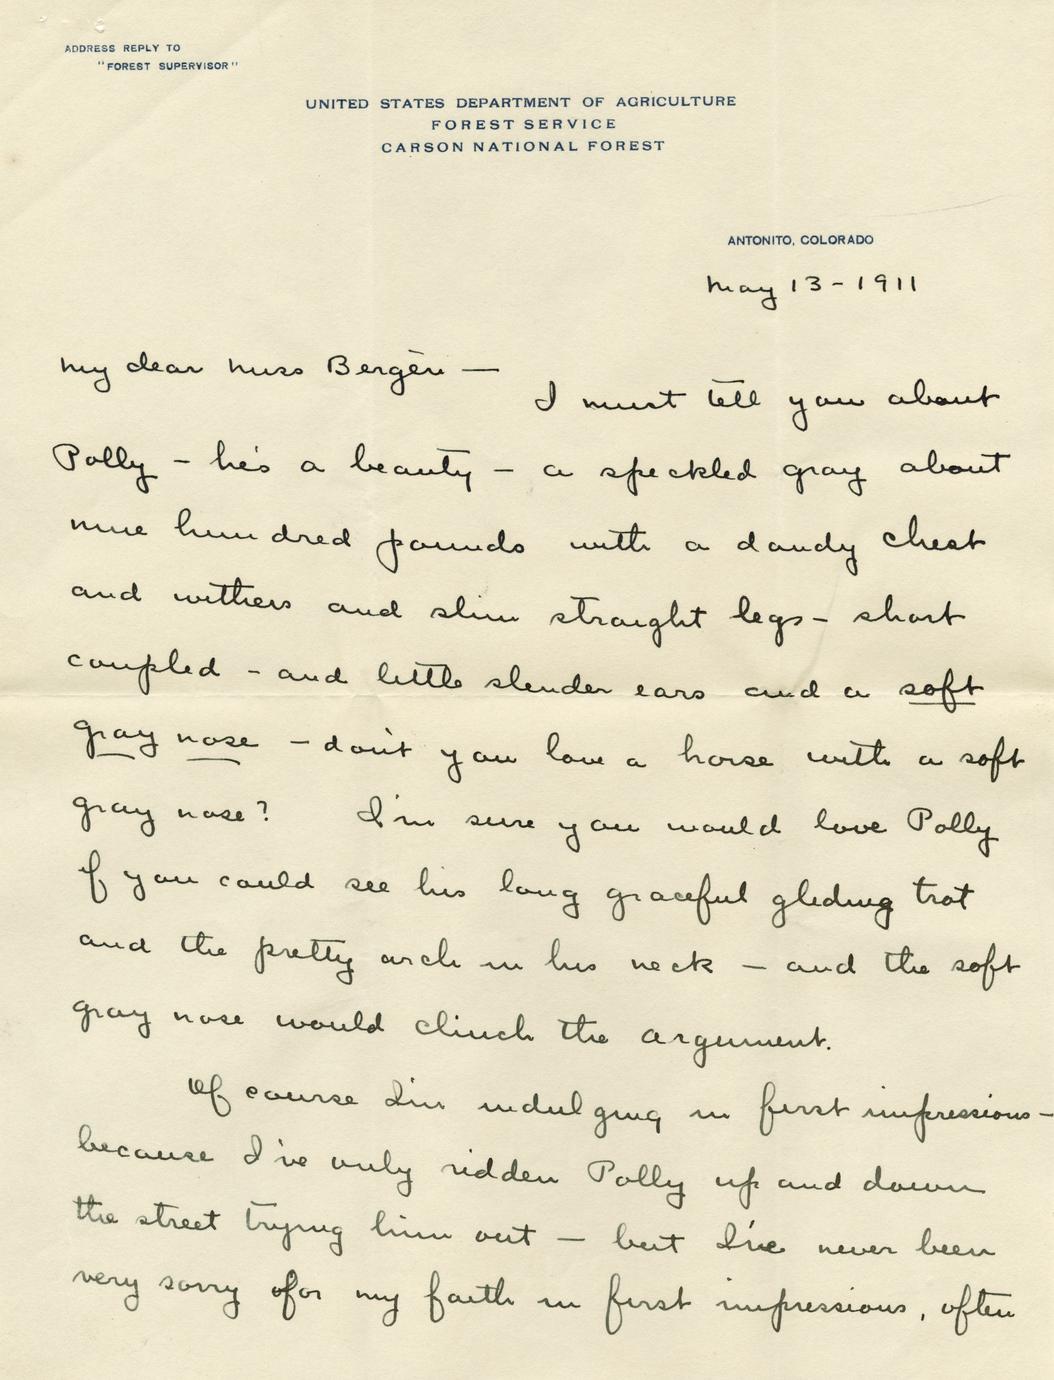 ADDRESS REPLY TO
"FOREST SUPERVISOR"
UNITED STATES DEPARTMENT OF AGRICULTURE
FOREST SERVICE
CARSON NATIONAL FOREST
ANTONITO, COLORADO
May 13 - 1911
My dear Miss Bergère —
I must tell you about
Polly - he's a beauty - a speckled gray about
nine hundred pounds with a dandy chest
and withers and slim straight legs - short
coupled - and little slender ears and a soft
gray nose - don't you love a horse with a soft
gray nose? I'm sure you would love Polly
if you could see his long graceful gliding trot
and the pretty arch in his neck - and the soft
gray nose would clinch the argument.
Of course I'm indulging in first impressions -
because I've only ridden Polly up and down
the street trying him out - but I've never been
very sorry for my faith in first impressions, often